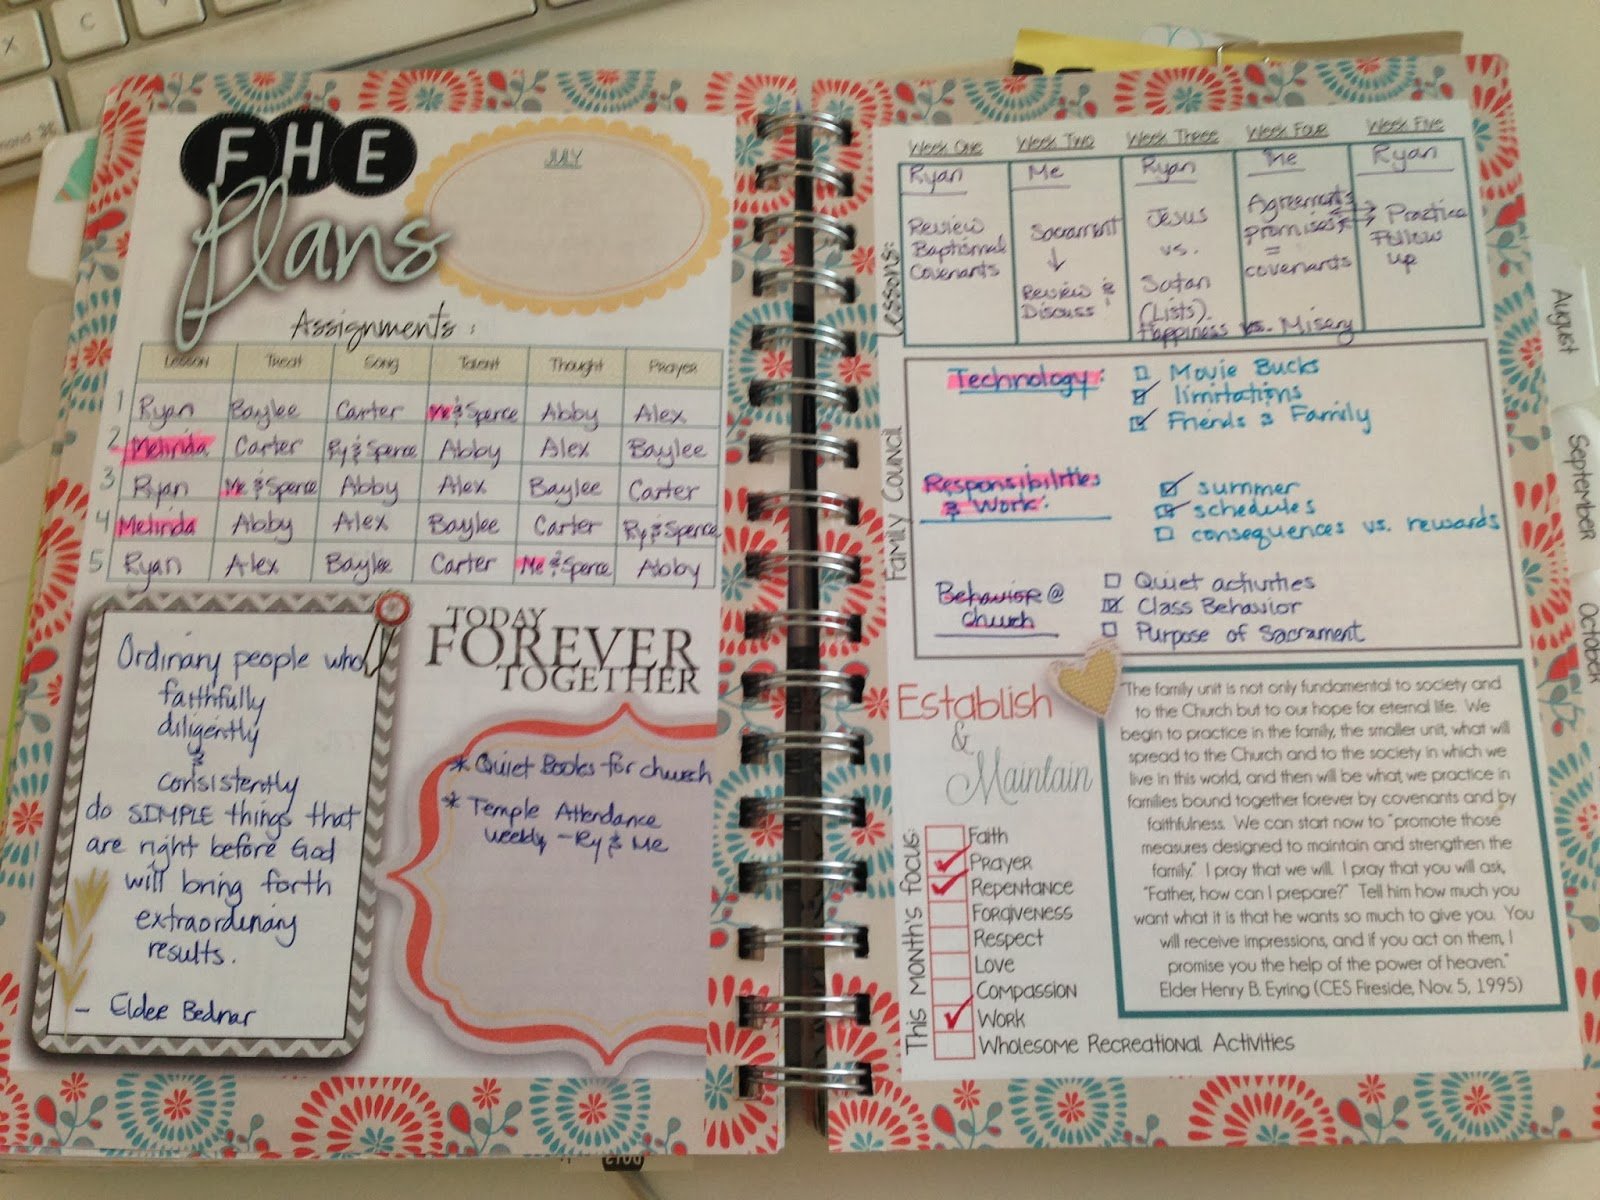 FHE
Plans
JULY
Assignments:
Lesson Treat Song Talent Thought Prayer
1 Ryan Baylee Carter Me & Spence Abby Alex
2 Melinda Carter Ry & Spence Abby Alex Baylee
3 Ryan Me & Spence Abby Alex Baylee Carter
4 Melinda Abby Alex Baylee Carter Ry & Spence
5 Ryan Alex Baylee Carter Me & Spence Abby
Ordinary people who
faithfully
diligently
&
consistently
do SIMPLE things that
are right before God
will bring forth
extraordinary
results.
- Elder Bednar
TODAY
FOREVER
TOGETHER
* Quiet Books for church
* Temple Attendance
weekly - Ry & Me
Lessons:
Week One Week Two Week Three Week Four Week Five
Ryan Me Ryan Me Ryan
Review
Baptismal
Covenants
Sacrament
Review &
Discuss!
Jesus
vs.
Satan
(Lists).
Happiness vs. Misery
Agreements
promises
=
covenants
Practice
Follow
up
Family Council
Technology:
Movie Bucks
limitations
Friends & Family
Responsibilities
& Work:
summer
schedules
consequences vs. rewards
Behavior @
church
Quiet activities
Class Behavior
Purpose of Sacrament
Establish
&
Maintain
This month's focus:
Faith
Prayer
Repentance
Forgiveness
Respect
Love
Compassion
Work
Wholesome Recreational Activities
The family unit is not only fundamental to society and
to the Church but to our hope for eternal life. We
begin to practice in the family, the smaller unit, what will
spread to the Church and to the society in which we
live in this world, and then will be what we practice in
families bound together forever by covenants and by
faithfulness. We can start now to "promote those
measures designed to maintain and strengthen the
family." I pray that we will. I pray that you will ask,
"Father, how can I prepare?" Tell him how much you
want what it is that he wants so much to give you. You
will receive impressions, and if you act on them, I
promise you the help of the power of heaven."
Elder Henry B. Eyring (CES Fireside, Nov. 5, 1995)
August
September
October